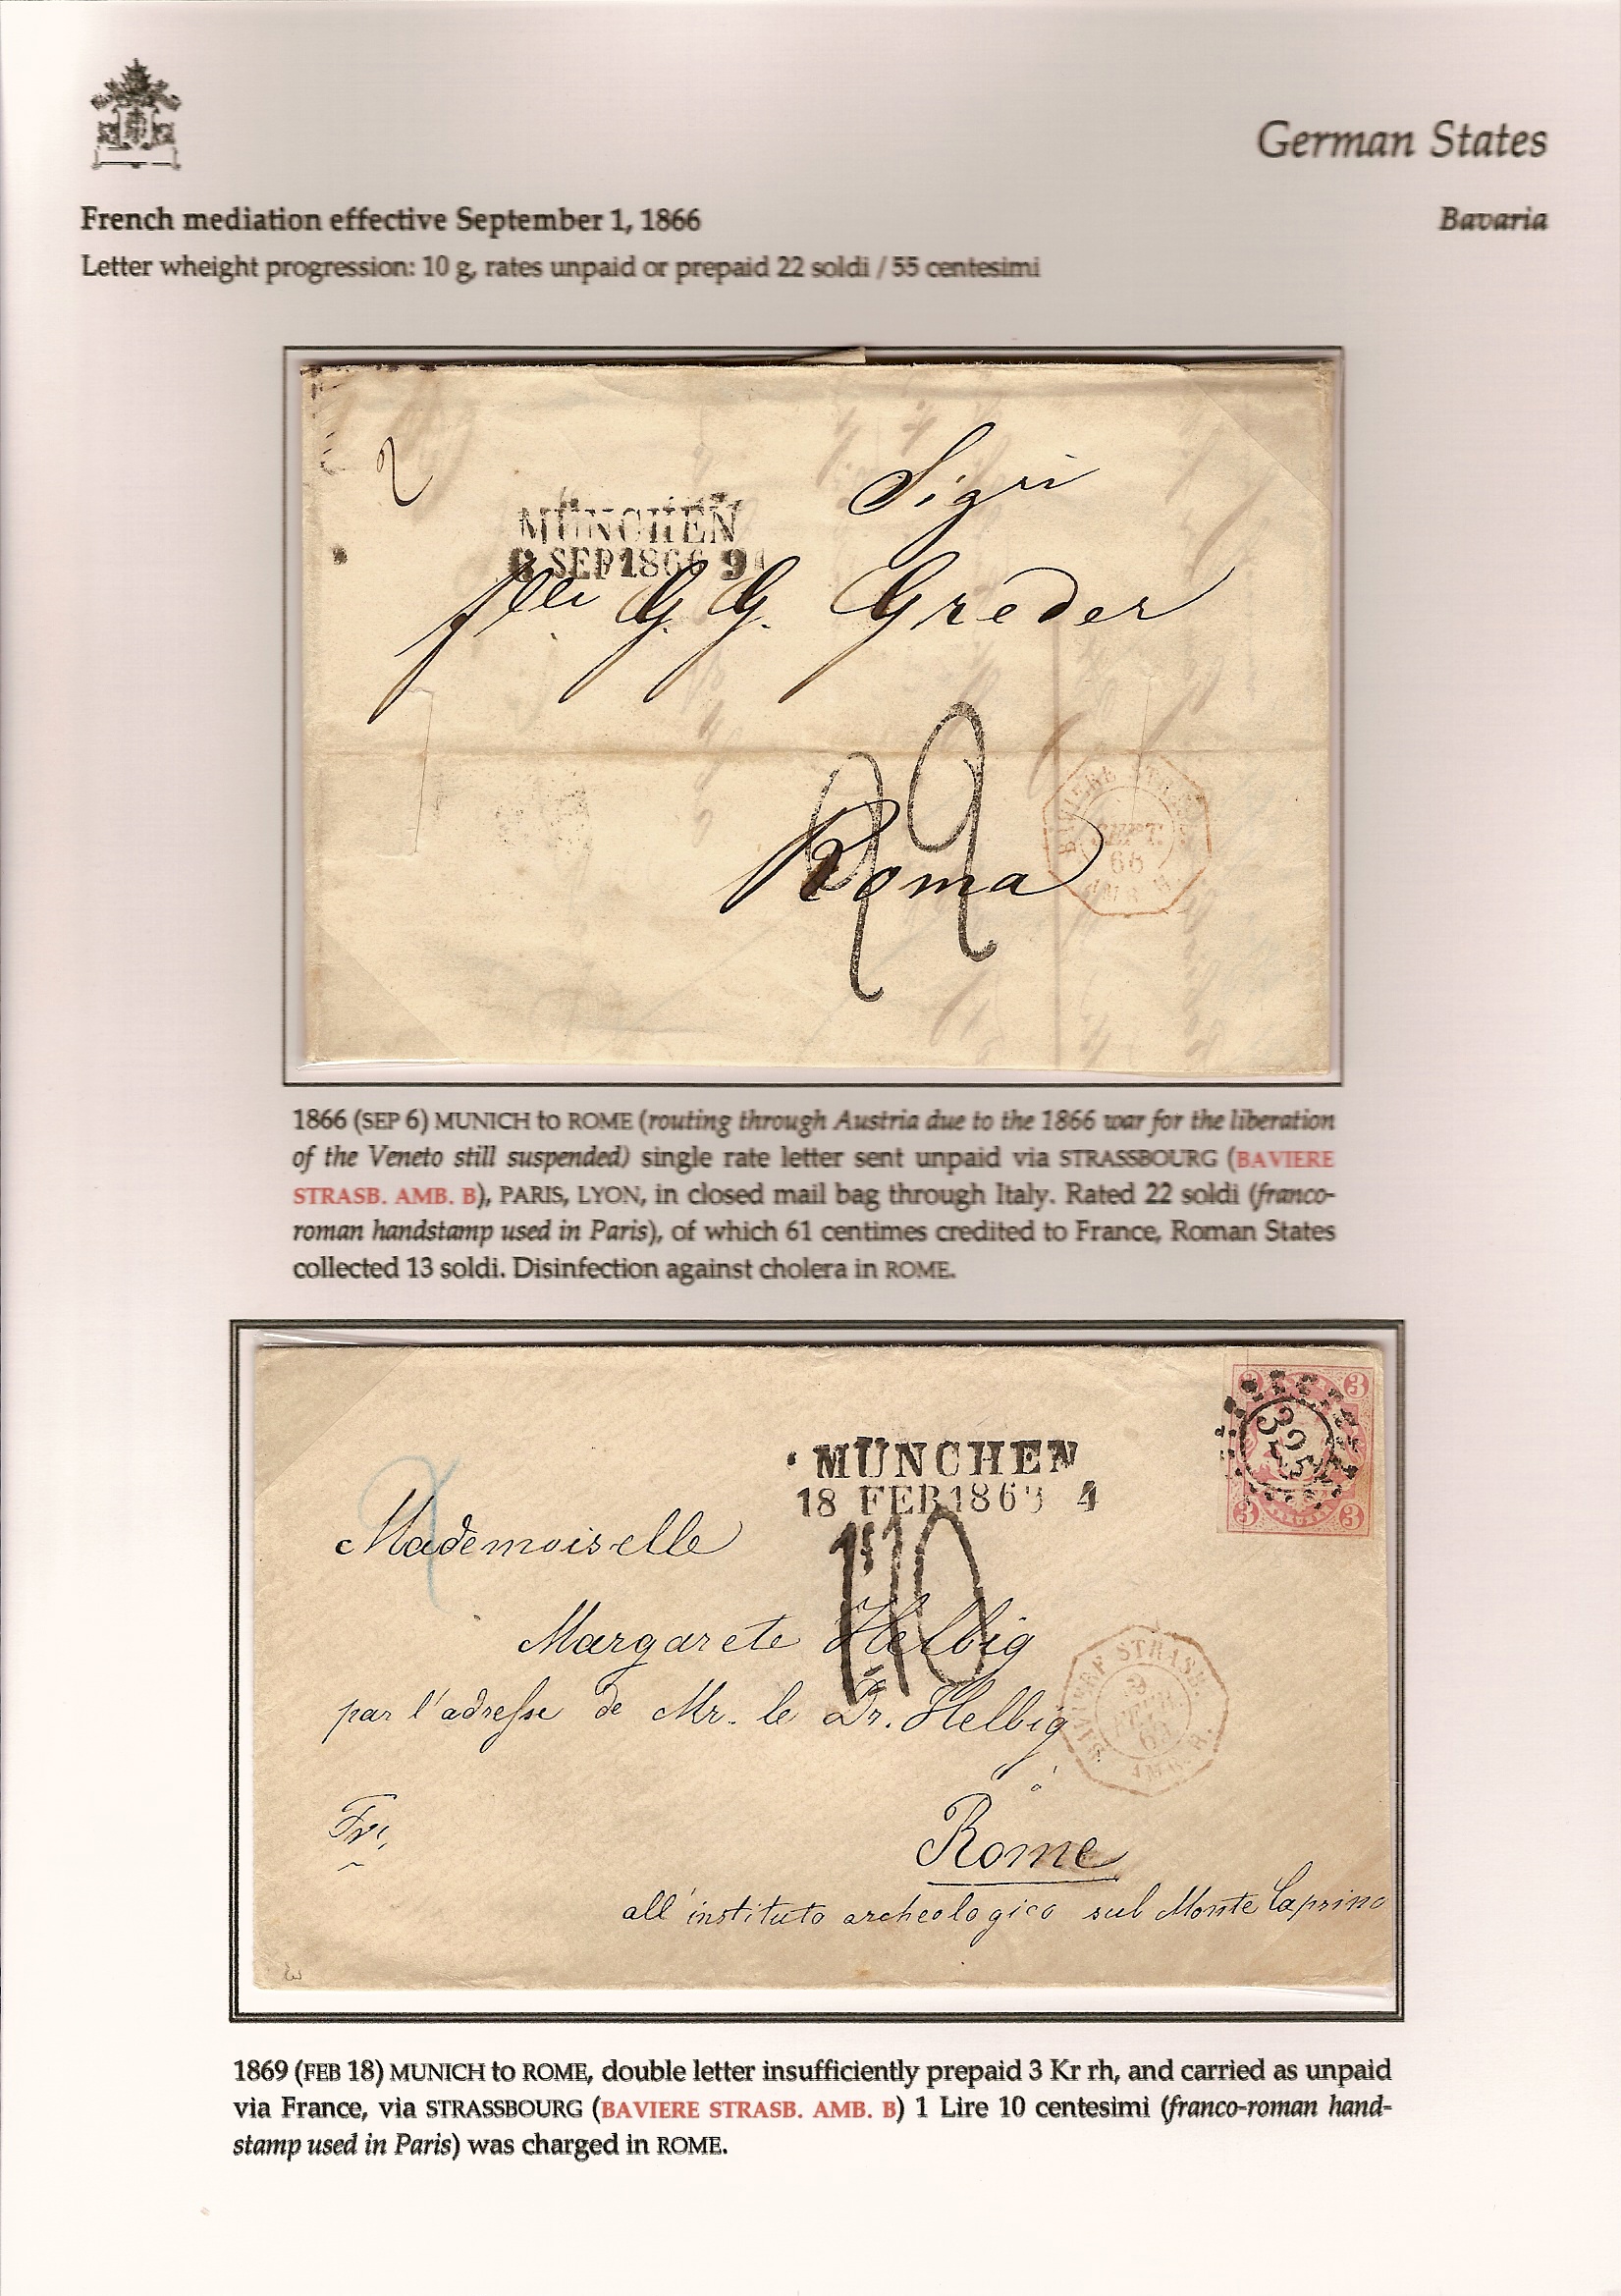 German States
French mediation effective September 1, 1866
Bavaria
Letter wheight progression: 10 g, rates unpaid or prepaid 22 soldi / 55 centesimi
2
Sigri
MÜNCHEN
6 SEP 1866 9
flli G. G. Greder
22
Roma
BAVIERE STRASB.
SEPT.
66
AMB. B.
1866 (SEP 6) MUNICH to ROME (routing through Austria due to the 1866 war for the liberation
of the Veneto still suspended) single rate letter sent unpaid via STRASSBOURG (BAVIERE
STRASB. AMB. B), PARIS, LYON, in closed mail bag through Italy. Rated 22 soldi (franco-
roman handstamp used in Paris), of which 61 centimes credited to France, Roman States
collected 13 soldi. Disinfection against cholera in ROME.
3
3
3
325
MÜNCHEN
18 FEB 1869 4
2
Mademoiselle
1"10
Margarete Helbig
par l'adresse de Mr. le Dr. Helbig
BAVIERE STRASB.
FEVR.
69
AMB. B.
à
Fr.
Rome
all'instituto archeologico sul Monte Caprino
1869 (FEB 18) MUNICH to ROME, double letter insufficiently prepaid 3 Kr rh, and carried as unpaid
via France, via STRASSBOURG (BAVIERE STRASB. AMB. B) 1 Lire 10 centesimi (franco-roman hand-
stamp used in Paris) was charged in ROME.